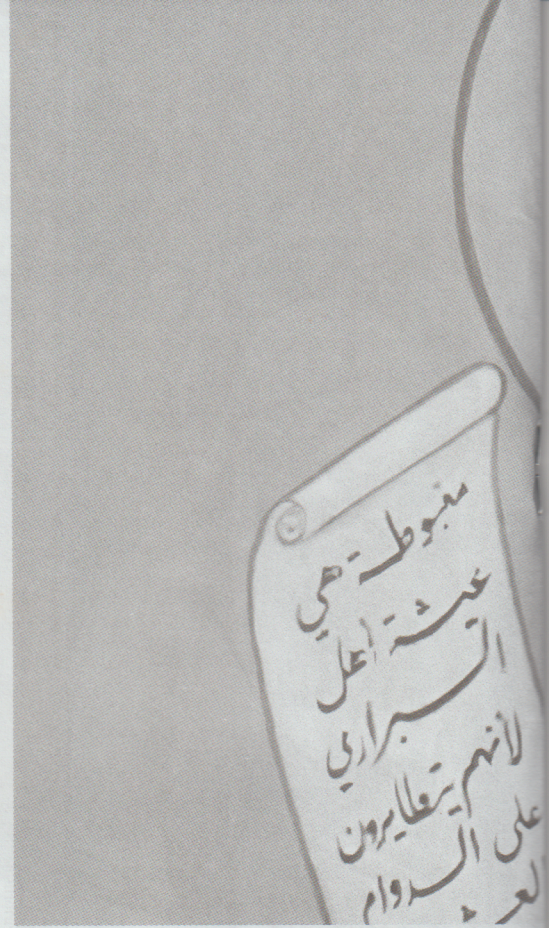 مغبوطة هي
عيشة اهل
البراري
لأنهم يتطايرون
على الدوام